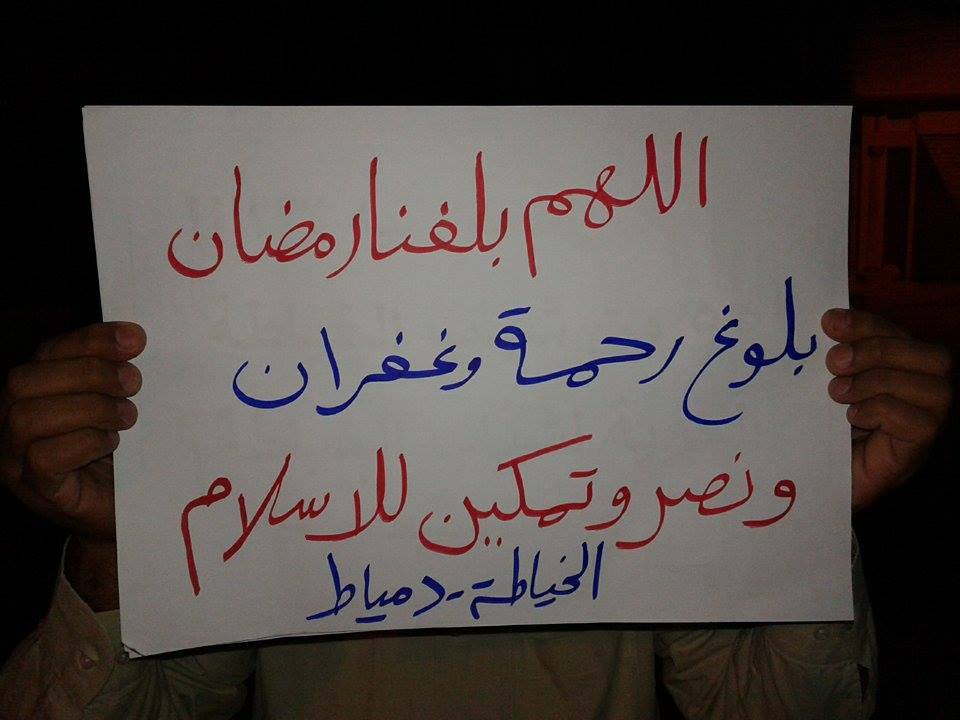 اللهم بلغنا رمضان
بلوغ رحمة وغفران
ونصر وتمكين للاسلام
الخياطة - دمياط